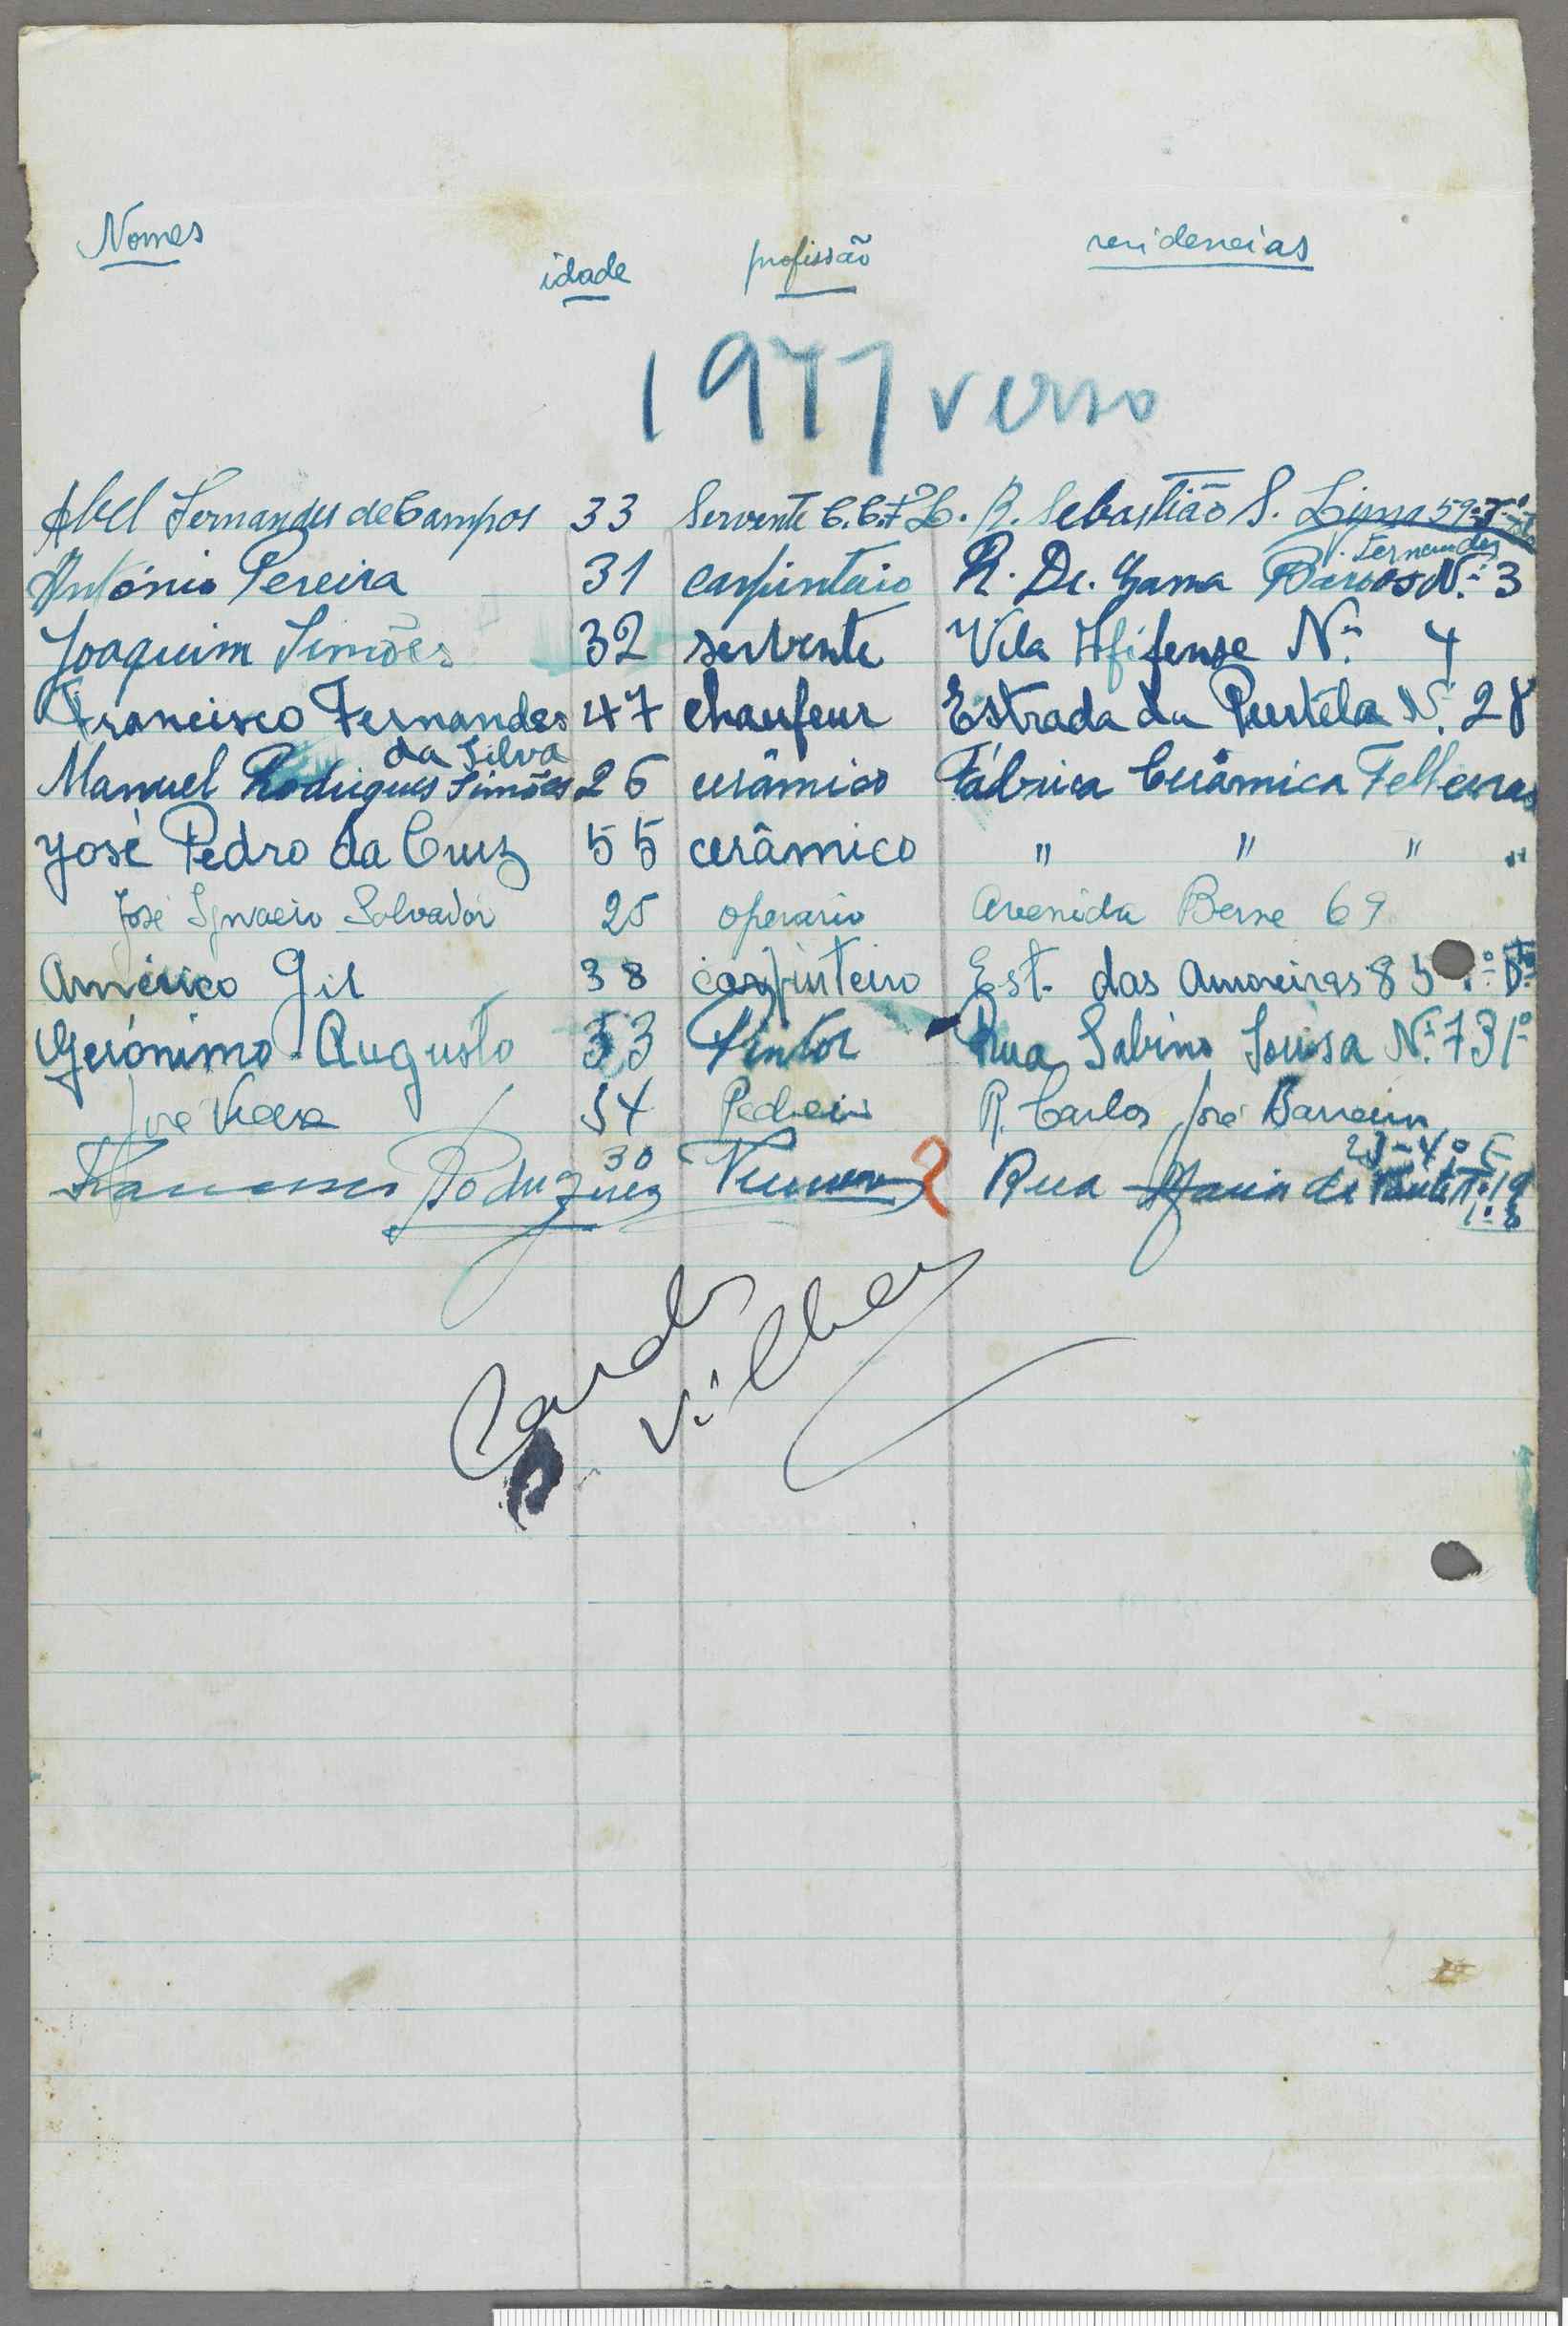 Nomes idade profissão residencias
1977 verso
Abel Fernandes de Campos 33 Servente C.C.F.L. R. Sebastião S. Lima 59-
V. Fernandes
António Pereira 31 carpintaio R. Dr. Gama Barros N.º 3
Joaquim Simões 32 servente Vila Afifense N.º 4
Francisco Fernandes 47 chaufeur Estrada da Purtela N. 28
da Silva
Manuel Rodrigues Simões 26 cerâmico Fábrica Cerâmica Telheiras
José Pedro da Cruz 55 cerâmico " " " "
José Ignacio Salvador 25 operario Avenida Berne 69
Américo Gil 38 carpinteiro Est. das Amoreiras 85
Gerónimo Augusto 33 Pintor Rua Sabino Sousa N.º 73 1º
José Vieira 54 Pedreiro R. Carlos José Barreiros
23-4º E
30
Rodrigues Rua Maria da Fonte